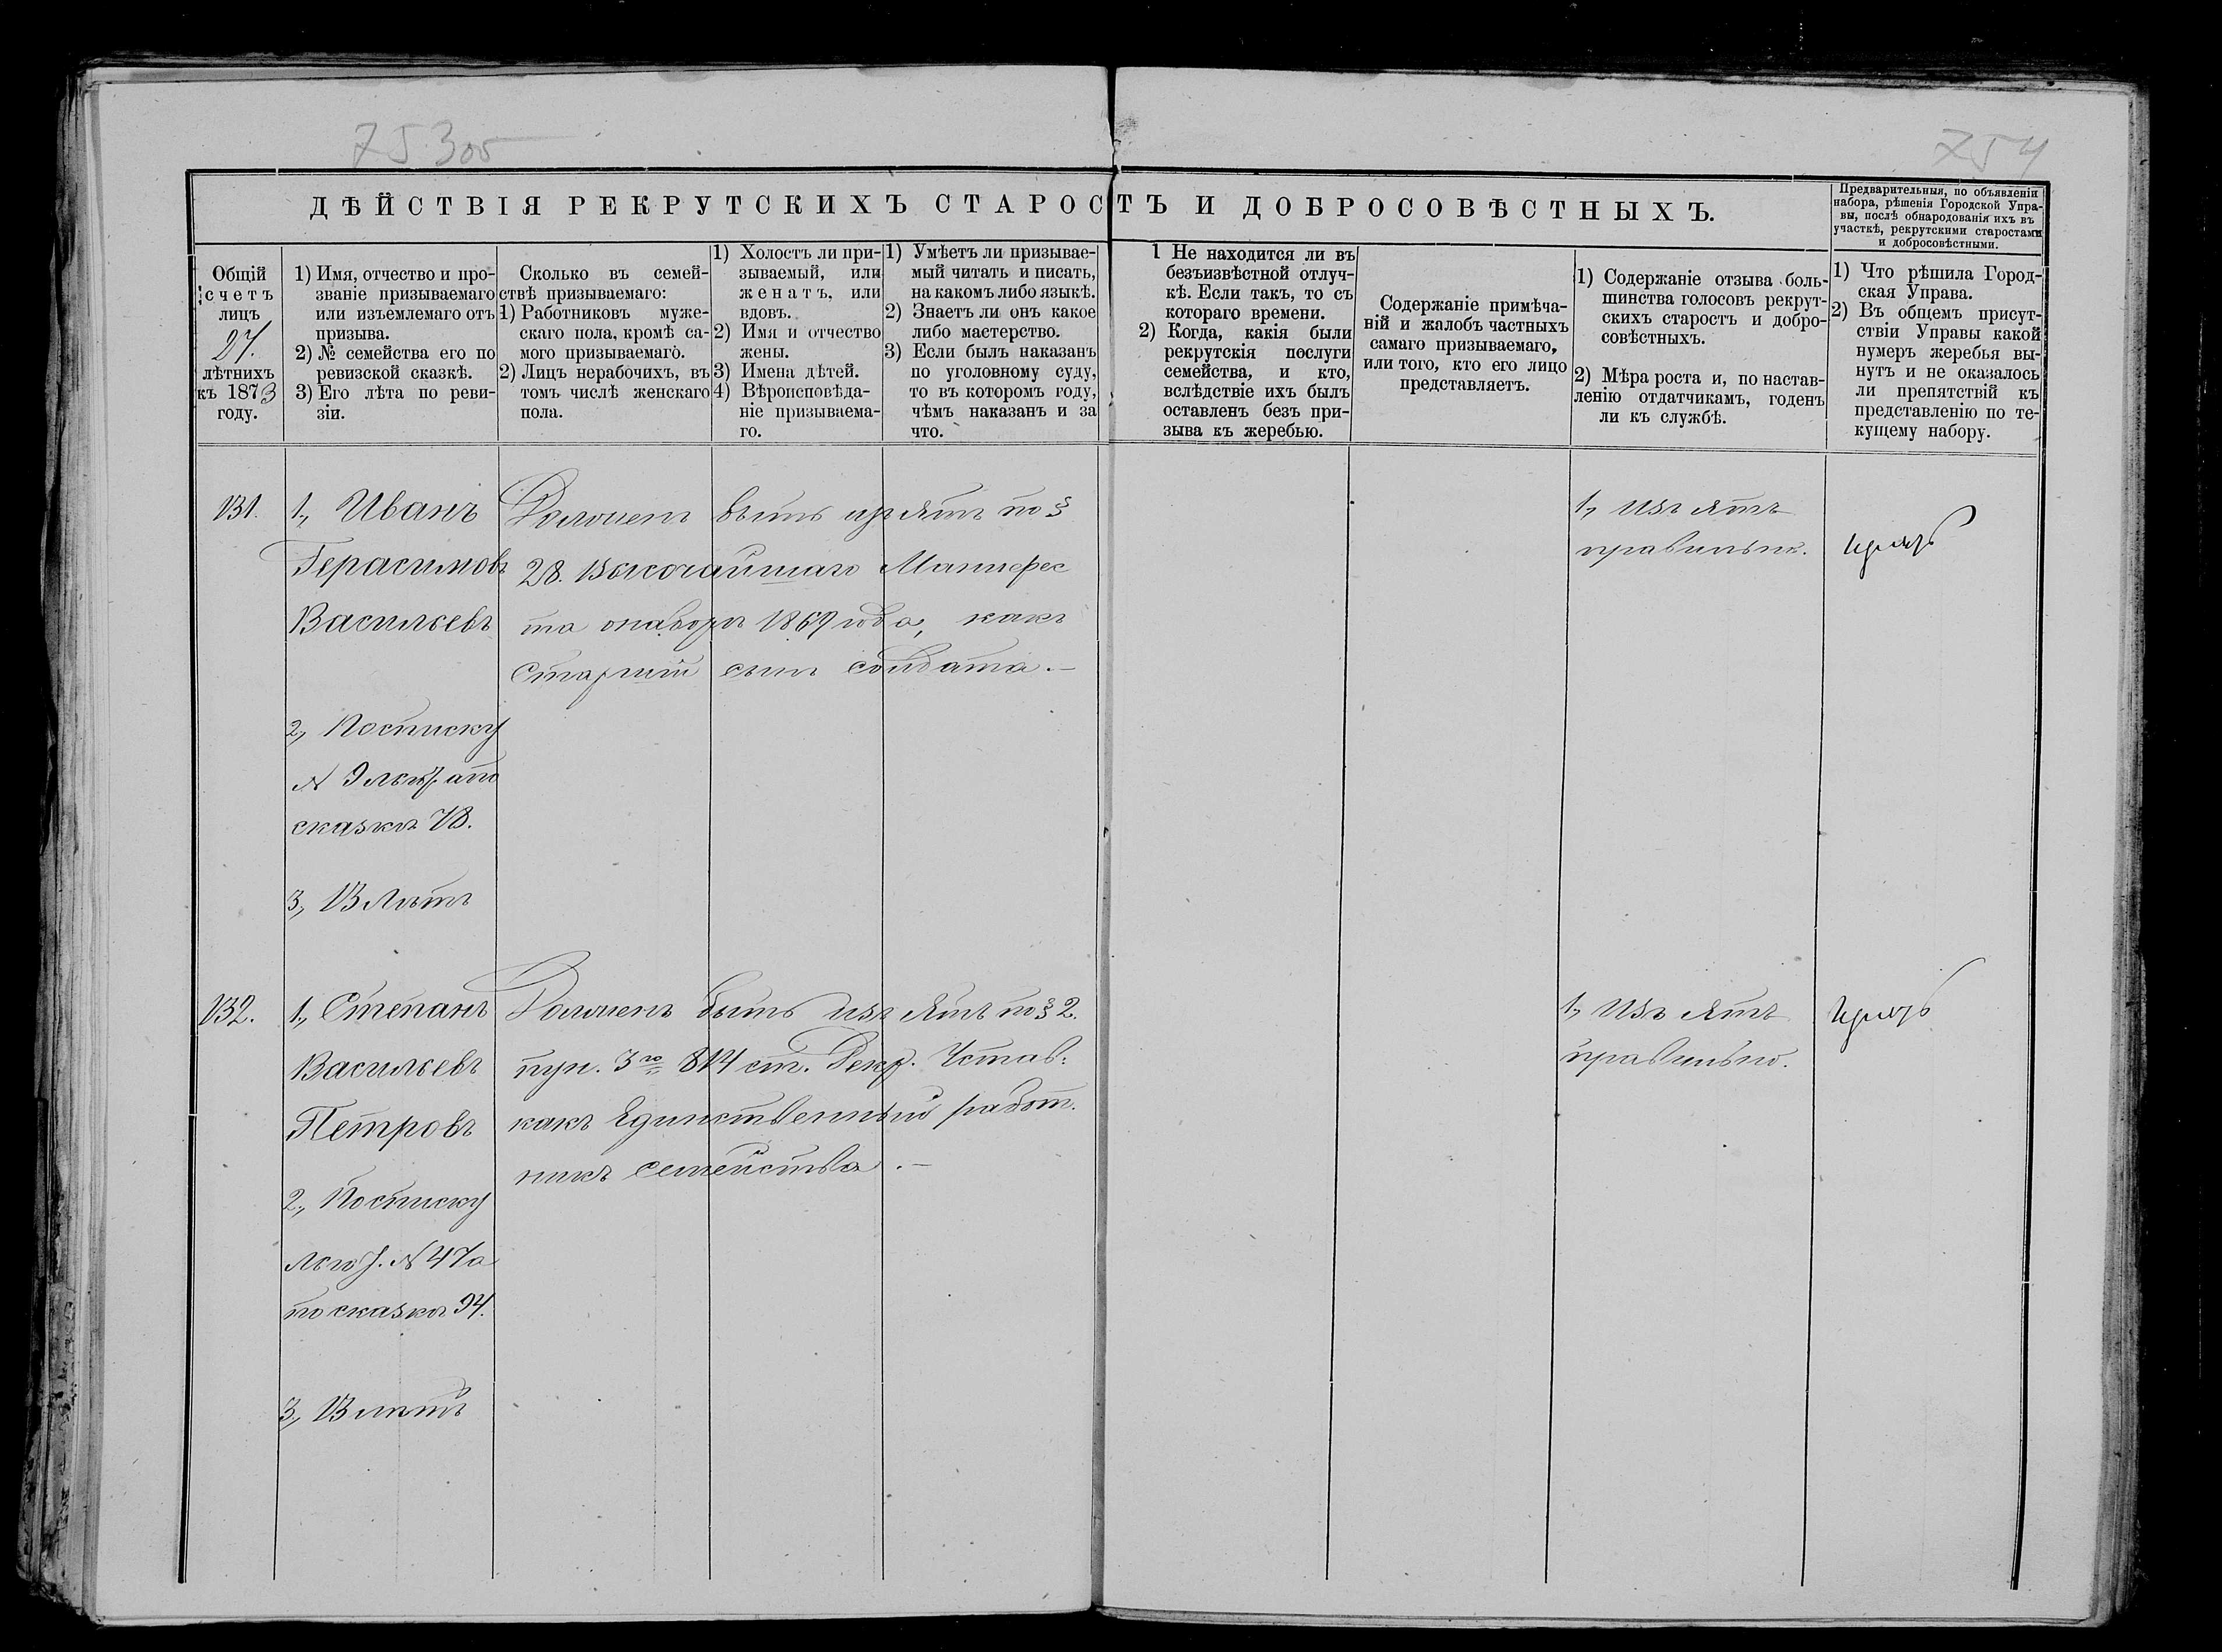 75 305
754
ДѢЙСТВІЯ РЕКРУТСКИХЪ СТАРОСТЪ И ДОБРОСОВѢСТНЫХЪ.
Предварительныя, по объявленіи
набора, рѣшенія Городской Упра-
вы, послѣ обнародованія ихъ въ
участкѣ, рекрутскими старостами
и добросовѣстными.
Общій
счетъ
лицъ
27.
лѣтнихъ
къ 1873
году.
1) Имя, отчество и про-
званіе призываемаго
или изъемлемаго отъ
призыва.
2) № семейства его по
ревизской сказкѣ.
3) Его лѣта по реви-
зіи.
Сколько въ семей-
ствѣ призываемаго:
1) Работниковъ муже-
скаго пола, кромѣ са-
мого призываемаго.
2) Лицъ нерабочихъ, въ
томъ числѣ женскаго
пола.
1) Холостъ ли при-
зываемый, или
женатъ, или
вдовъ.
2) Имя и отчество
жены.
3) Имена дѣтей.
4) Вѣроисповѣда-
ніе призываема-
го.
1) Умѣетъ ли призывае-
мый читать и писать,
на какомъ либо языкѣ.
2) Знаетъ ли онъ какое
либо мастерство.
3) Если былъ наказанъ
по уголовному суду,
то въ которомъ году,
чѣмъ наказанъ и за
что.
1 Не находится ли въ
безъизвѣстной отлуч-
кѣ. Если такъ, то съ
котораго времени.
2) Когда, какія были
рекрутскія послуги
семейства, и кто,
вслѣдствіе ихъ былъ
оставленъ безъ при-
зыва къ жеребью.
Содержаніе примѣча-
ній и жалобъ частныхъ
самаго призываемаго,
или того, кто его лицо
представляетъ.
1) Содержаніе отзыва боль-
шинства голосовъ рекрут-
скихъ старостъ и добро-
совѣстныхъ.
2) Мѣра роста и, по настав-
ленію отдатчикамъ, годенъ
ли къ службѣ.
1) Что рѣшила Город-
ская Управа.
2) Въ общемъ присут-
ствіи Управы какой
нумеръ жеребья вы-
нутъ и не оказалось
ли препятствій къ
представленію по те-
кущему набору.
131.
1., Иванъ
Герасимовъ
Васильевъ
2., По списку
сказкѣ 78.
3., 13 Лѣтъ
Долженъ быть изъятъ по §
28. Высочайшаго Манифес
та о наборѣ 1869 года, какъ
Старшій сынъ солдата. —
1., Изъятъ
правильно.
132.
1., Степанъ
Васильевъ
Петровъ
2., По списку
№ 47а
по сказкѣ 94.
3., 13 лѣтъ
Долженъ быть изъятъ по § 2.
пун. 3го 814 ст. Рекр. Устав:
какъ Единственный работ.
никъ семейства. —
1., Изъятъ
правильно.